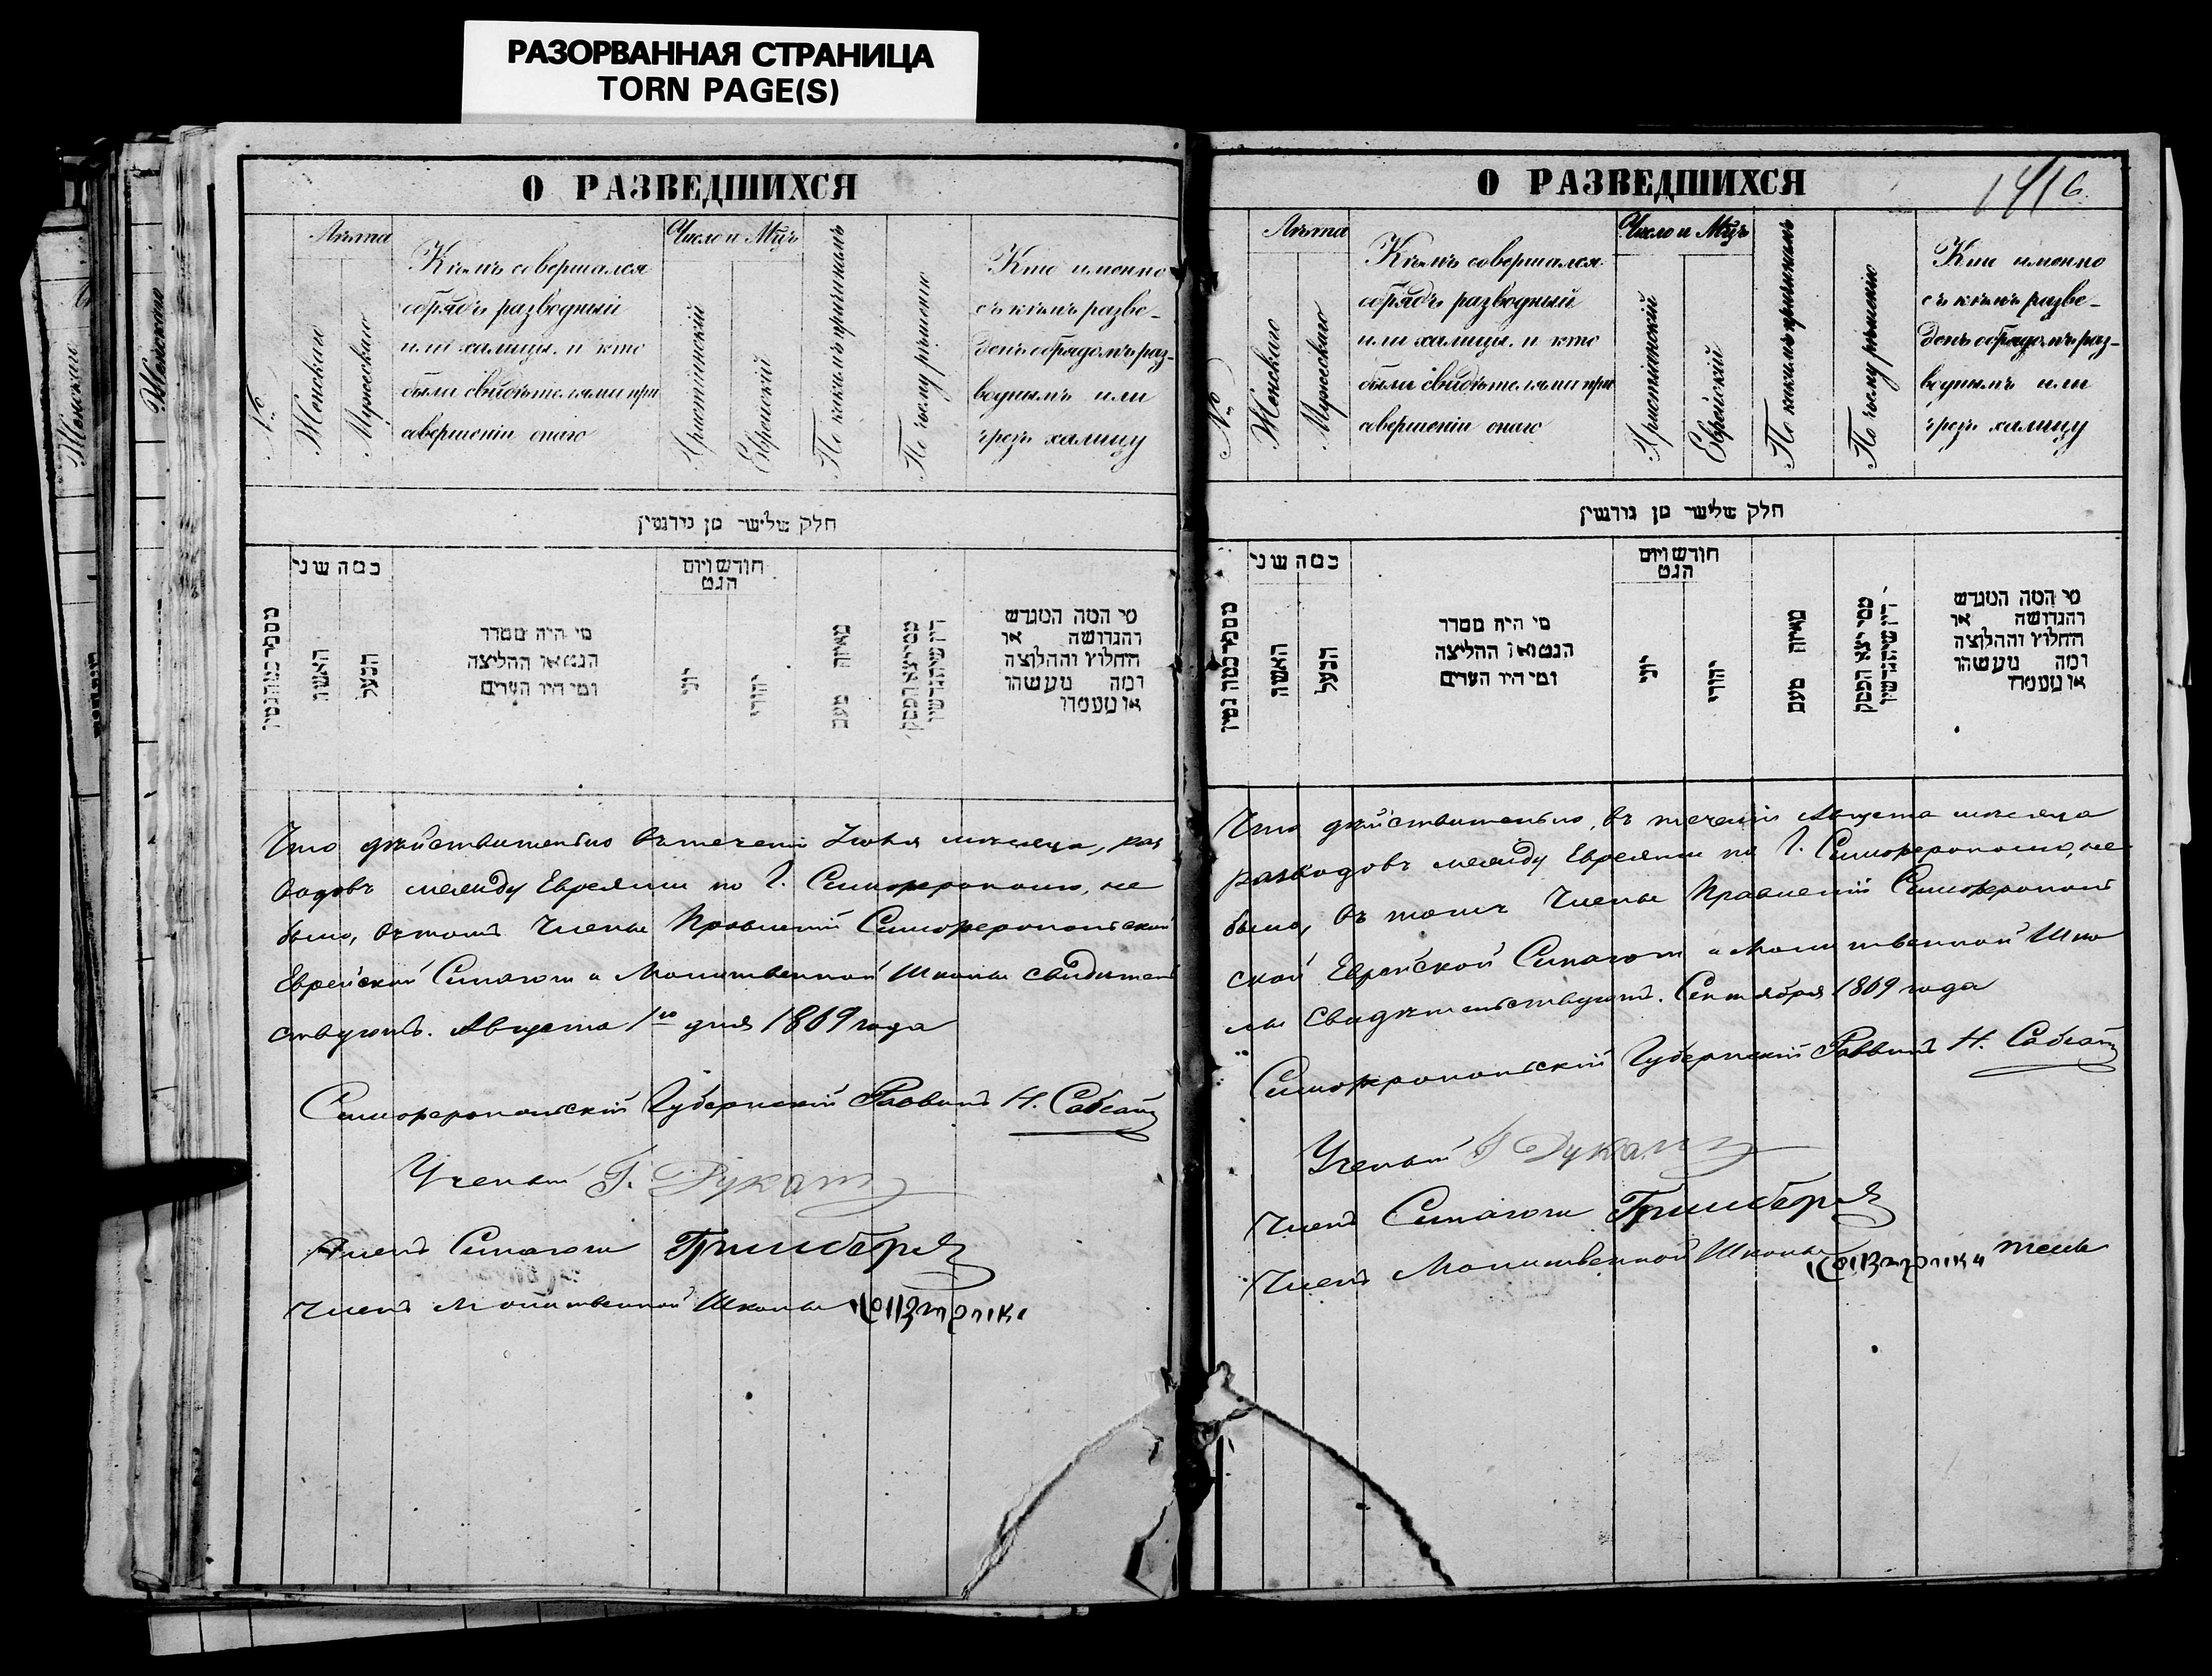 РАЗОРВАННАЯ СТРАНИЦА
TORN PAGE(S)
О РАЗВЕДШИХСЯ
№
Лѣта
Женскаго
Мужескаго
Кѣмъ совершался
обрядъ разводный
или халицы, и кто
были свидѣтелями при
совершеніи онаго
Число и Мѣц.
Христіанскій
Еврейскій
По какимъ причинамъ
По чьему рѣшенію
Кто именно
съ кѣмъ разве-
денъ обрядомъ раз-
воднымъ или
чрезъ халицу
חלק שלישי מן גירושין
כמה שני
האשה
הבעל
מי היה מסדר
הגט או החליצה
ומי היו העדים
חודש ויום
הגט
יוני
יהודי
מאיזה טעם
מי המה המגרש
והגרושה או
החלוץ וההלוצה
ומה מעשהו
או מעמדו
Что дѣйствительно въ теченіи Іюля мѣсяца, раз
водовъ между Евреями по Г. Симферополю, не
было, въ томъ Члены Правленій Симферопольской
Еврейской Синагоги и Молитвенной Школы свидѣтель
ствуютъ. Августа 1го дня 1869 года
Симферопольскій Губернскій Раввинъ Н.
Ученый Г.
Членъ Синагоги Гринбергъ
Членъ Молитвенной Школы
О РАЗВЕДШИХСЯ
№
Лѣта
Женскаго
Мужескаго
Кѣмъ совершался
обрядъ разводный
или халицы, и кто
были свидѣтелями при
совершеніи онаго
Число и Мѣц.
Христіанскій
Еврейскій
По какимъ причинамъ
По чьему рѣшенію
Кто именно
съ кѣмъ разве-
денъ обрядомъ раз-
воднымъ или
чрезъ халицу
חלק שלישי מן גירושין
כמה שני
האשה
הבעל
מי היה מסדר
הגט או החליצה
ומי היו העדים
חודש ויום
הגט
יוני
יהודי
מאיזה טעם
מי המה המגרש
והגרושה או
החלוץ וההלוצה
ומה מעשהו
או מעמדו
Что дѣйствительно, въ теченіи Августа мѣсяца
разводовъ между Евреями по Г. Симферополю, не
было, въ томъ Члены Правленій Симферополь
ской Еврейской Синагоги и Молитвенной Шко
лы Свидѣтельствуютъ. Сентября 1869 года
Симферопольскій Губернскій Раввинъ Н.
Ученый Г
Членъ Синагоги Гринбергъ
Членъ Молитвенной Школы